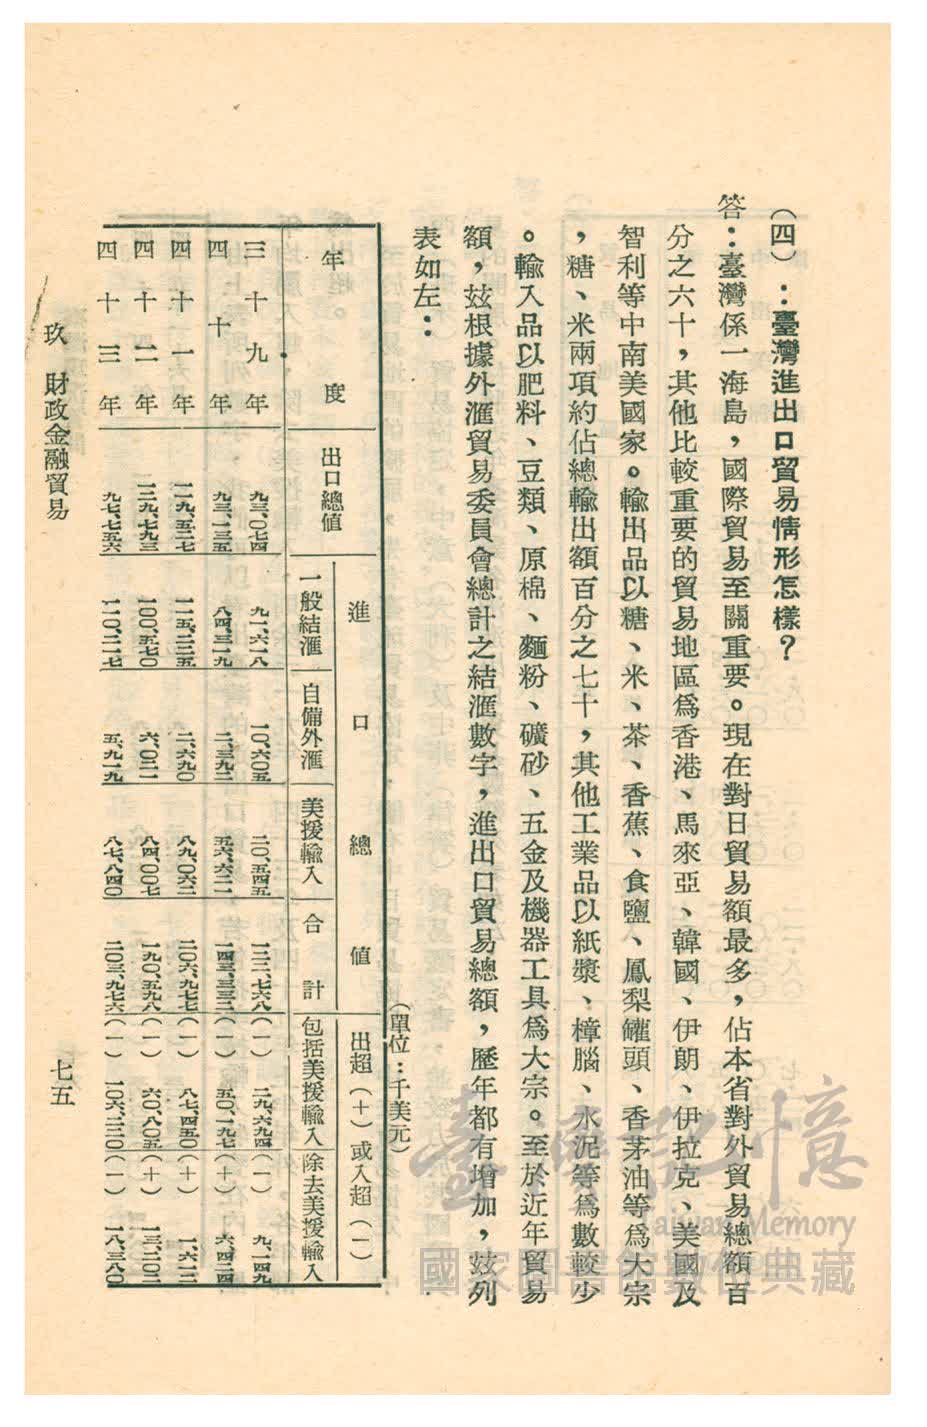 (四)：臺灣進出口貿易情形怎樣？
答：臺灣係一海島，國際貿易至關重要。現在對日貿易額最多，佔本省對外貿易總額百
分之六十，其他比較重要的貿易地區爲香港、馬來亞、韓國、伊朗、伊拉克、美國及
智利等中南美國家。輸出品以糖、米、茶、香蕉、食鹽、鳳梨罐頭、香茅油等爲大宗
，糖、米兩項約佔總輸出額百分之七十，其他工業品以紙漿、樟腦、水泥等爲數較少
。輸入品以肥料、豆類、原棉、麵粉、礦砂、五金及機器工具爲大宗。至於近年貿易
額，玆根據外滙貿易委員會總計之結滙數字，進出口貿易總額，歷年都有增加，玆列
表如左：
(單位：千美元)
年度 出口總值 進口總值 出超(十)或入超(一)
一般結滙 自備外滙 美援輸入 合計 包括美援輸入 除去美援輸入
三十九年 九三、〇七四 九一、六一八 一〇、六〇五 二〇、五四五 一二二、七六八 (一) 二九、六九四 (一) 九、一四九
四十年 九三、一三五 八四、三一九 二、三九二 五六、六二一 一四三、三三二 (一) 五〇、一九七 (十) 六、四二四
四十一年 一一九、五二七 一一五、二二五 二、六九〇 八九、〇六二 二〇六、九七七 (一) 八七、四五〇 (十) 一、六一二
四十二年 一二九、七九三 一〇〇、五七〇 六、〇二一 八四、〇〇七 一九〇、五九八 (一) 六〇、八〇五 (十) 一三、二〇二
四十三年 九七、七五六 一一〇、二一七 五、九一九 八七、八四〇 二〇三、九七六 (一) 一〇六、二二〇 (一) 一八、三八〇
玖　財政金融貿易
七五
臺灣記憶
Taiwan Memory
國家圖書館數位典藏